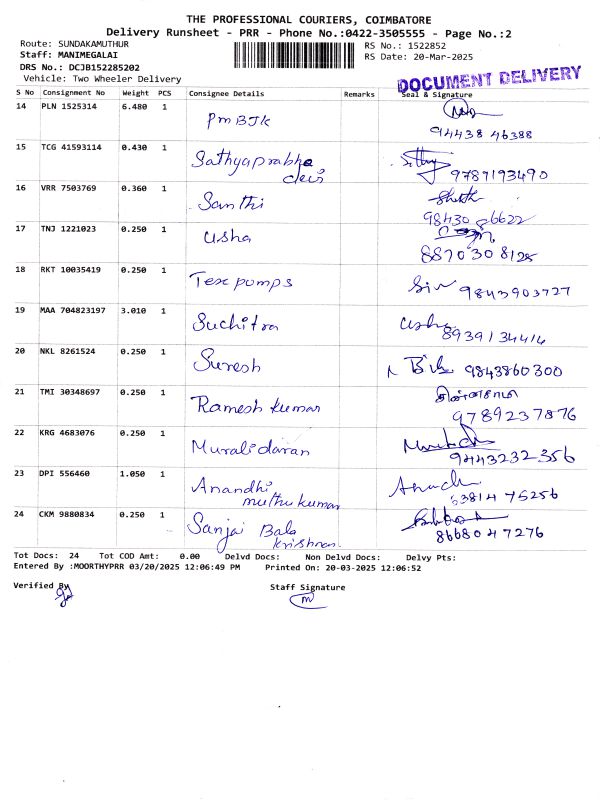 THE PROFESSIONAL COURIERS, COIMBATORE
Delivery Runsheet - PRR - Phone No.:0422-3505555 - Page No.:2
Route: SUNDAKAMUTHUR RS No.: 1522852
Staff: MANIMEGALAI RS Date: 20-Mar-2025
DRS No.: DCJB152285202
Vehicle: Two Wheeler Delivery
DOCUMENT DELIVERY
S No Consignment No Weight PCS Consignee Details Remarks Seal & Signature
14 PLN 1525314 6.480 1 PmBJk
94438 46388
15 TCG 41593114 0.430 1 Sathyaprabha devi
9787193490
16 VRR 7503769 0.360 1 Santhi
98430 86622
17 TNJ 1221023 0.250 1 Usha
8870 30 8125
18 RKT 10035419 0.250 1 Tex pumps
9843903727
19 MAA 704823197 3.010 1 Suchitra Usha
8939134414
20 NKL 8261524 0.250 1 Suresh 9843860300
21 TMI 30348697 0.250 1 Ramesh kumar
9789237876
22 KRG 4683076 0.250 1 Muralidaran
9443232356
23 DPI 556460 1.050 1 Anandhi muthukumar
63814 75256
24 CKM 9880834 0.250 1 Sanjai Bala krishnan
8668047276
Tot Docs: 24 Tot COD Amt: 0.00 Delvd Docs: Non Delvd Docs: Delvy Pts:
Entered By :MOORTHYPRR 03/20/2025 12:06:49 PM Printed On: 20-03-2025 12:06:52
Verified By Staff Signature